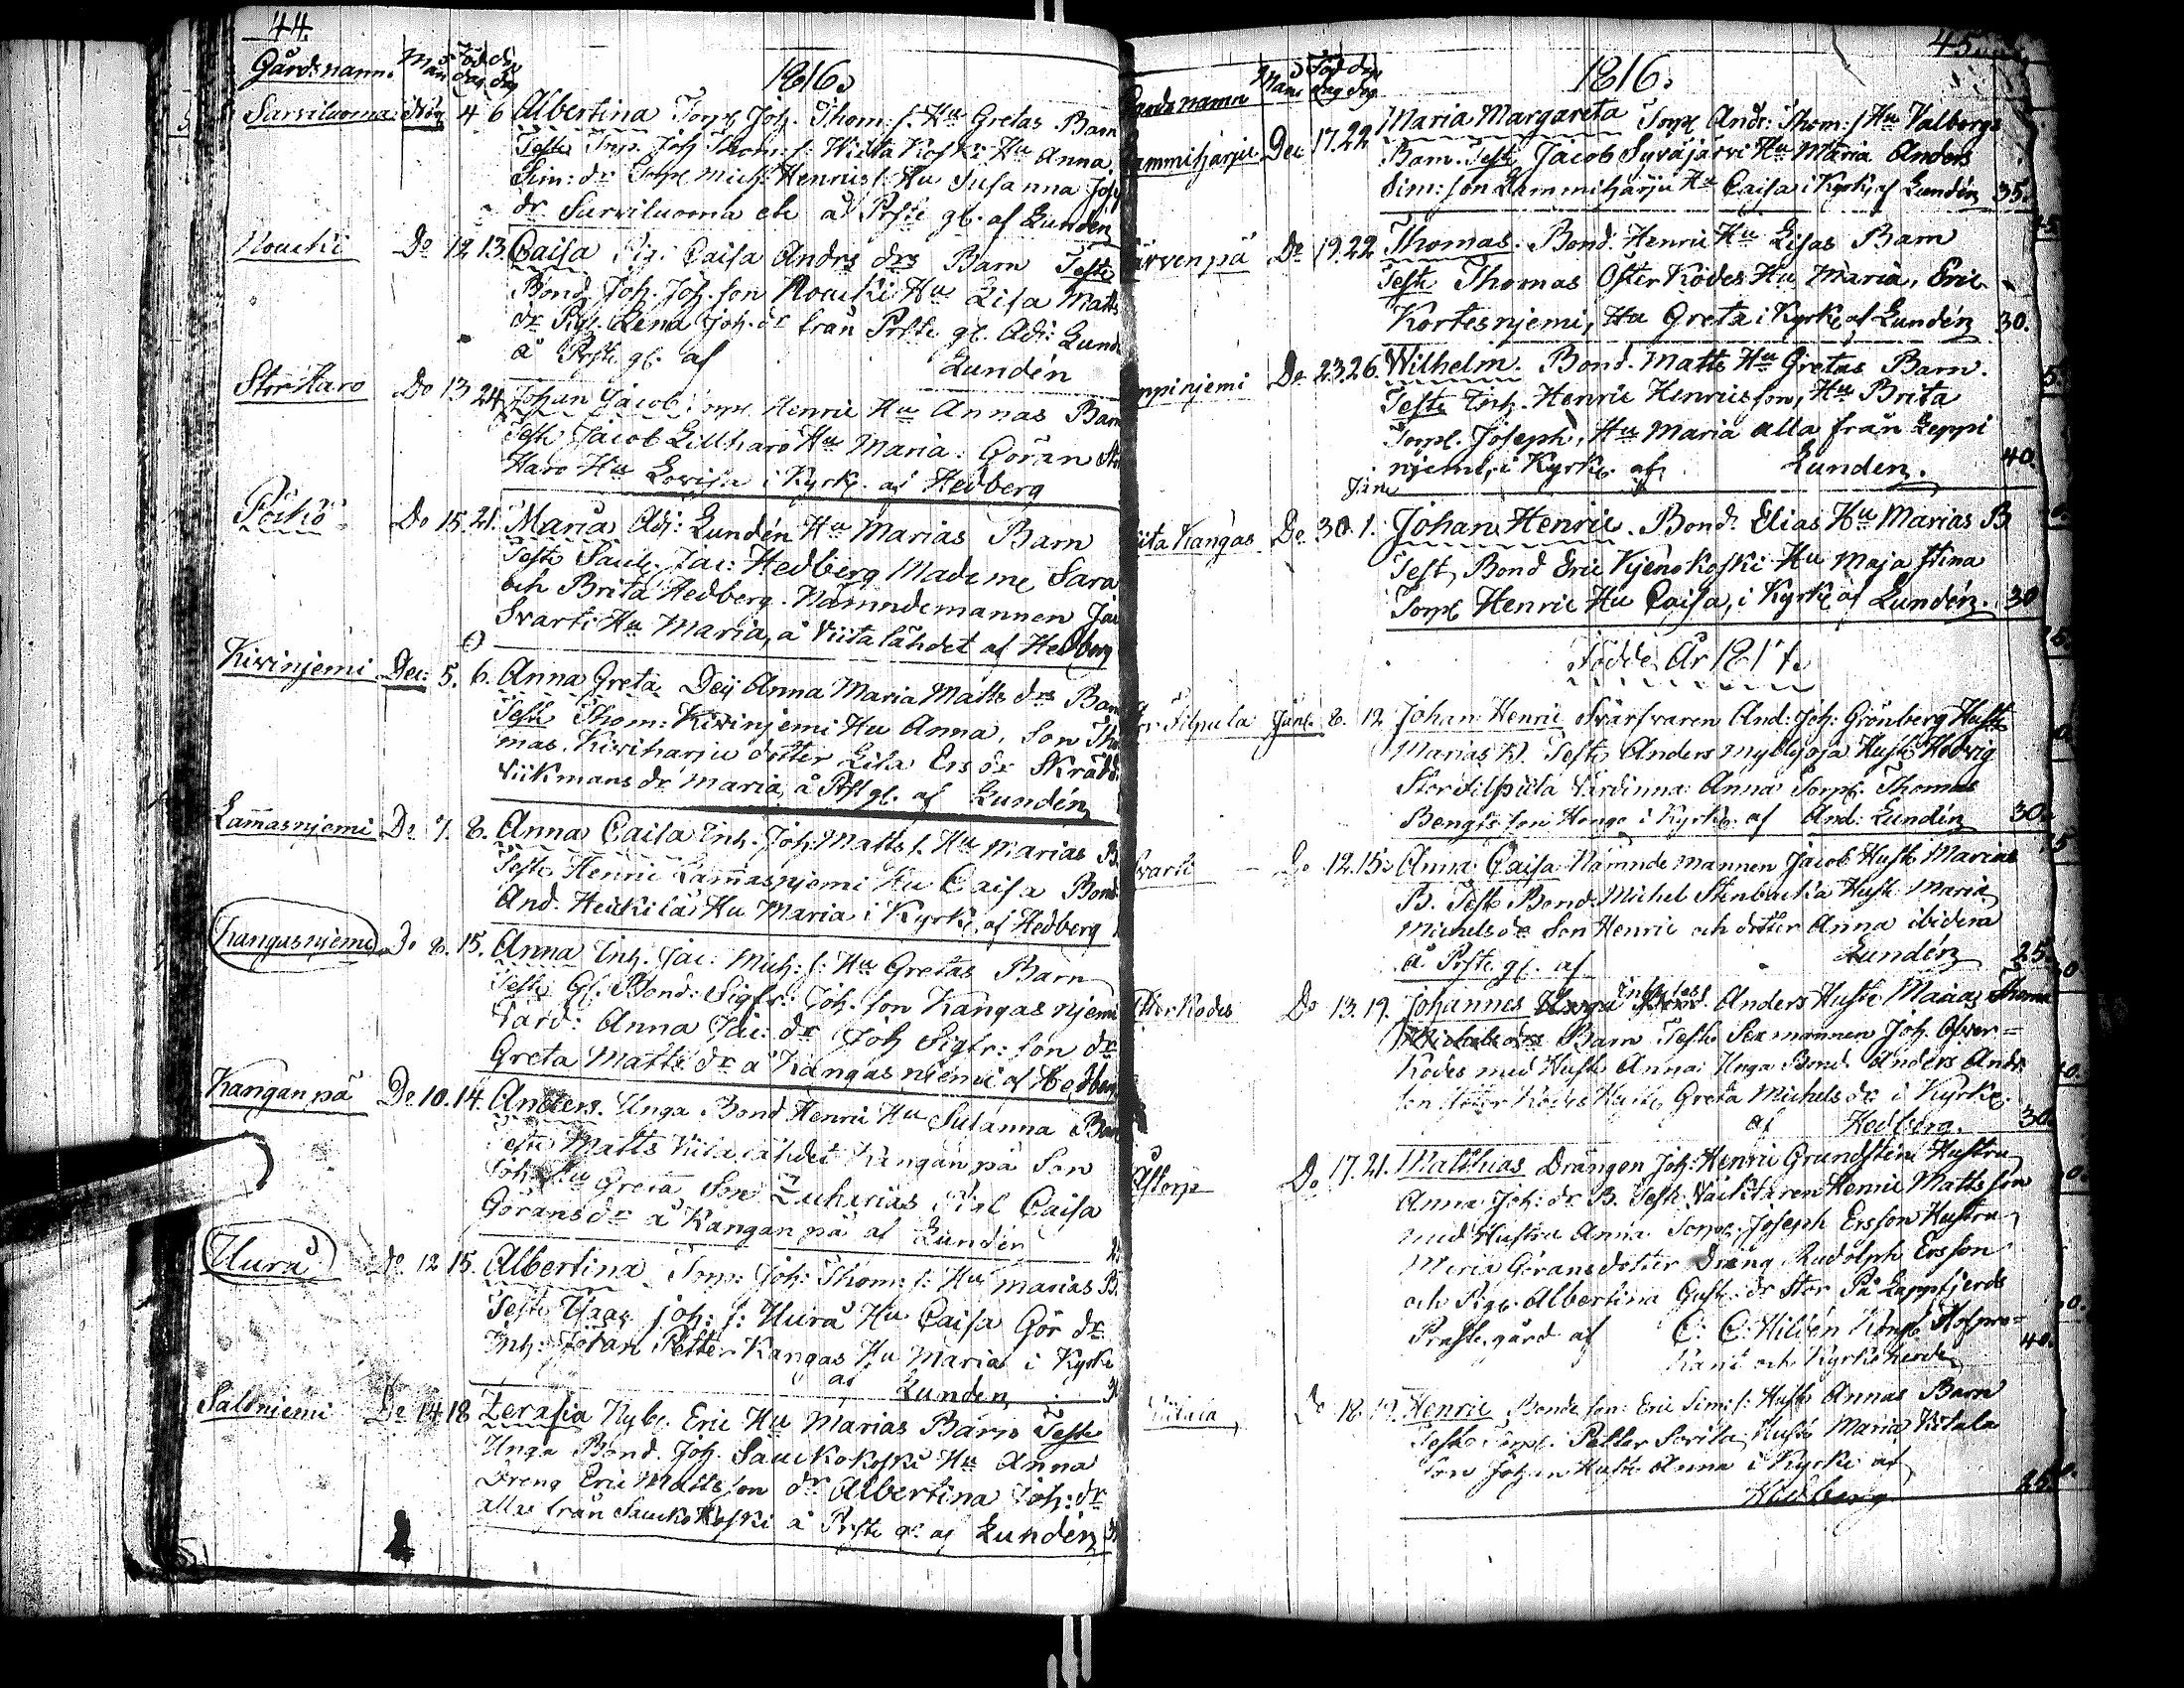 44.
Gårdsnamn. Mån Född dag Döp dag 1816.
Sarviluoma Nov 4 6 Albertina Torp. Joh. Thom: s. Hu Gretas Barn
Teste Torp. Joh Thom: s. Hietta Koski Hu Anna
Sim: dr Torp Mich: Henrics s. Hu Susanna Joh
dr Surviluoma etc å Prste gl. af Lundén
Rouchi Do 12 13. Caisa Pig. Caisa Andrs drs Barn Teste
Bond. Joh. Joh. son Rouchi Hu Lisa Matts
dr Pig. Lena Joh. dr från Prste gl. Adj: Lund
å Prste gl. af Lundén
Stor Haro Do 13 24 Johan Jacob Torp. Henric Hu Annas Barn
Teste Jacob Lillharo Hu Maria. Göran Stor
Haro Hu Lovisa i Kyrk. af Hedberg
Do 15. 21. Maria Adj: Lundén Hu Marias Barn
Teste Jac: Hedberg Madame Sara
och Brita Hedberg. Nämndemannen Jac
Svarti Hu Maria, å Viitalähdet af Hedberg
Kivinjemi Dec: 5. 6. Anna Greta Dej Anna Maria Matts drs Barn
Teste Thom: Kivinjemi Hu Anna, Son Tho
mas. Kiviharju dotter Lisa Ers dr Skrädd.
Viikmans dr Maria, å Prst gl. af Lundén
Lam̄asnjemi Do 7. 8. Anna Caisa Inh. Joh: Matts s. Hu Marias B.
Teste Henric Lam̄asnjemi Hu Caisa Bond
And. Heikkilä Hu Maria i Kyrk. af Hedberg
Kangasnjemi Do 8. 15. Anna Inh. Jac: Mich: s: Hu Gretas Barn
Teste Gl. Bond: Sigfr: Joh. son Kangasnjemi
Värd: Anna Jac: dr Joh Sigfr: son dr
Greta Matts dr å Kangasniemi af Hedberg
Kanganpä Do 10. 14. Anders. Unga Bond Henric Hu Susanna Barn
Teste Matts Viitalähdet Kanganpä Son
Joh Hu Greta Son Zacharias Caisa
Görans dr å Kanganpä af Lundén
Hurå Do 12 15. Albertina Torp: Joh: Thom: s. Hu Marias B.
Teste Isaac Joh: s: Hurå Hu Caisa Gör dr
Inh: Johan Petter Kangas Hu Maria i Kyrk
af Lundén
Saloniemi Do 14 18 Zerafia Nyb. Eric Hu Marias Barn Teste
Unga Bond. Joh Sauckokoski Hu Anna
Dreng Eric Mattsson dr Albertina Joh: dr
alla från Sauckokoski å Prste gl. af Lundén
45
Gårds namn Mån Född dag Döp dag 1816.
Lammiharju Dec 17. 22 Maria Margareta Torp. Andr: Thom: s Hu Valborgs
Barn. Teste Jacob Syväjärvi Hu Maria Anders
Sim: son Lammiharju Hu Caisa i Kyrk af Lundén 35.
Järvenpä Do 19. 22 Thomas. Bond. Henric Hu Lisas Barn
Teste Thomas Öster Ködes Hu Maria, Eric
Kortesnjemi, Hu Greta i Kyrk. af Lundén 30.
Leppinjemi Do 23. 26. Wilhelm. Bond. Matts Hu Gretas Barn.
Teste Inh. Henric Henricsson, Hu Brita
Torp. Joseph, Hu Maria alla från Leppi
njemi, i Kyrk. af Lundén. 40.
Jan
Viitakangas Do 30. 1. Johan Henric. Bond. Elias Hu Marias B
Test, Bond Eric Kjenokoski Hu Maja Stina
Torp. Henric Hu Caisa, i Kyrk. af Lundén. 30
Födde År 1817.
Stor Filpula Janu. 8. 12 Johan Henric Svarfvaren And: Joh: Grönberg Hust
Marias B. Teste Anders Myllyoja Hust Hedvig
Storfilpula Värdinna: Anna Torp. Thomas
Bengtsson Honga i Kyrk. af And: Lundén 30.
Svarti Do 12. 15. Anna Caisa Nämndemannen Jacob Hust Marias
B. Teste Bond. Michel Stenbacka Hust Maria
Michels dr Son Henric och dotter Anna ibidem
å Prste gl. af Lundén 25.
Öster Ködes Do 13. 19. Johannes Anders Hust Marias Thoma
Barn Teste Sexmannen Joh. Öfver=
Ködes med Hust Anna Unga Bond. Anders Andr
son Öster Ködes Hust Greta Michels dr i Kyrk.
af Hedberg. 30
Åstorp Do 17. 21. Matthias Drängen Joh: Henric Grundsten Hustru
Anna Joh: dr B. Teste Vaiktaren Henric Mattsson
med Hustru Anna Torp. Joseph Ersson Hustru
Maria Göransdotter Dräng Rudolph Ersson
och Pig. Albertina Gust. dr Stor På Lappfjerds
Prästegård af C: C: Hildén Kongl Hofpre=
kant och Kyrkoherde 40.
Viitala Do 18. 19. Henric Bonde son: Eric Sim: s: Hust Annas Barn
Teste Torp. Petter Sorila Hust Maria Viitala
Son Johan Hust Anna i Kyrk. af
Hedberg 25.